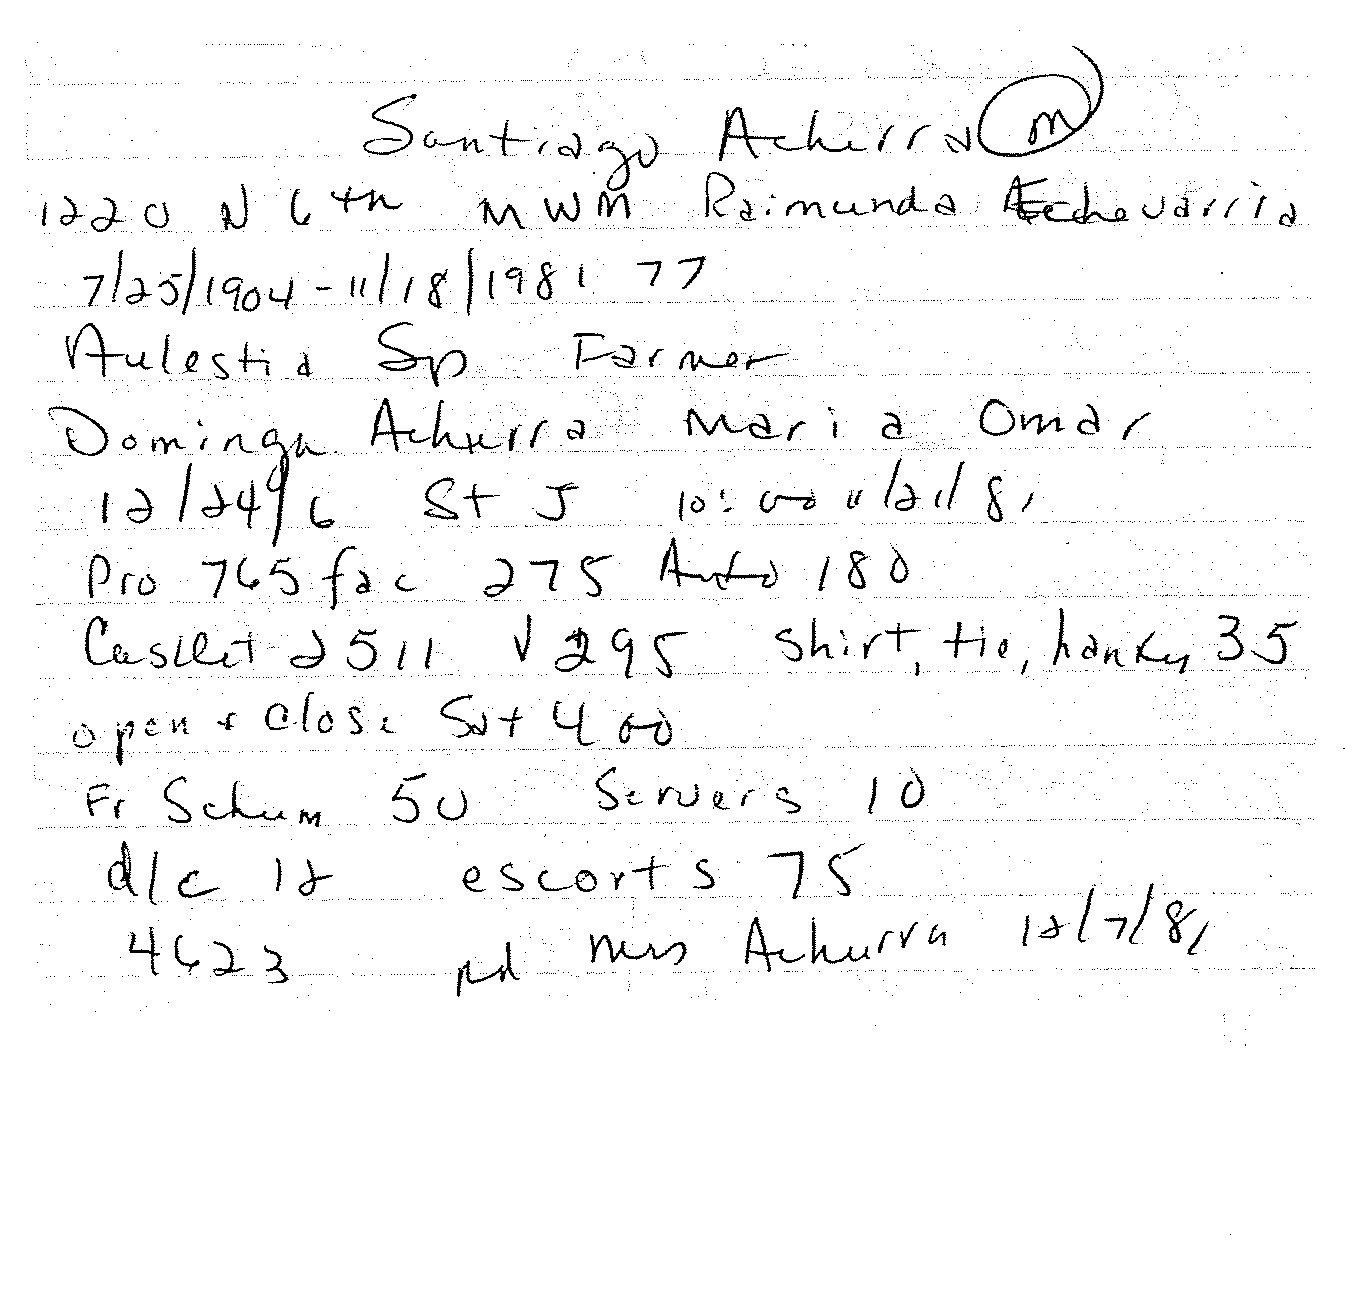 Santiago Achurra M
1220 N 6th MWM Raimunda Echevarria
7/25/1904 - 11/18/1981 77
Aulestia Sp Farmer
Domingu Achurra Maria Omar
12/24/6 St J 10:00 11/21/81
Pro 765 fac 275 Auto 180
Casket 2511 V 295 shirt, tie, hanky 35
open + close Sat 400
Fr Schum 50 Servers 10
d/c 12 escorts 75
4623 pd Mrs Achurra 12/7/81